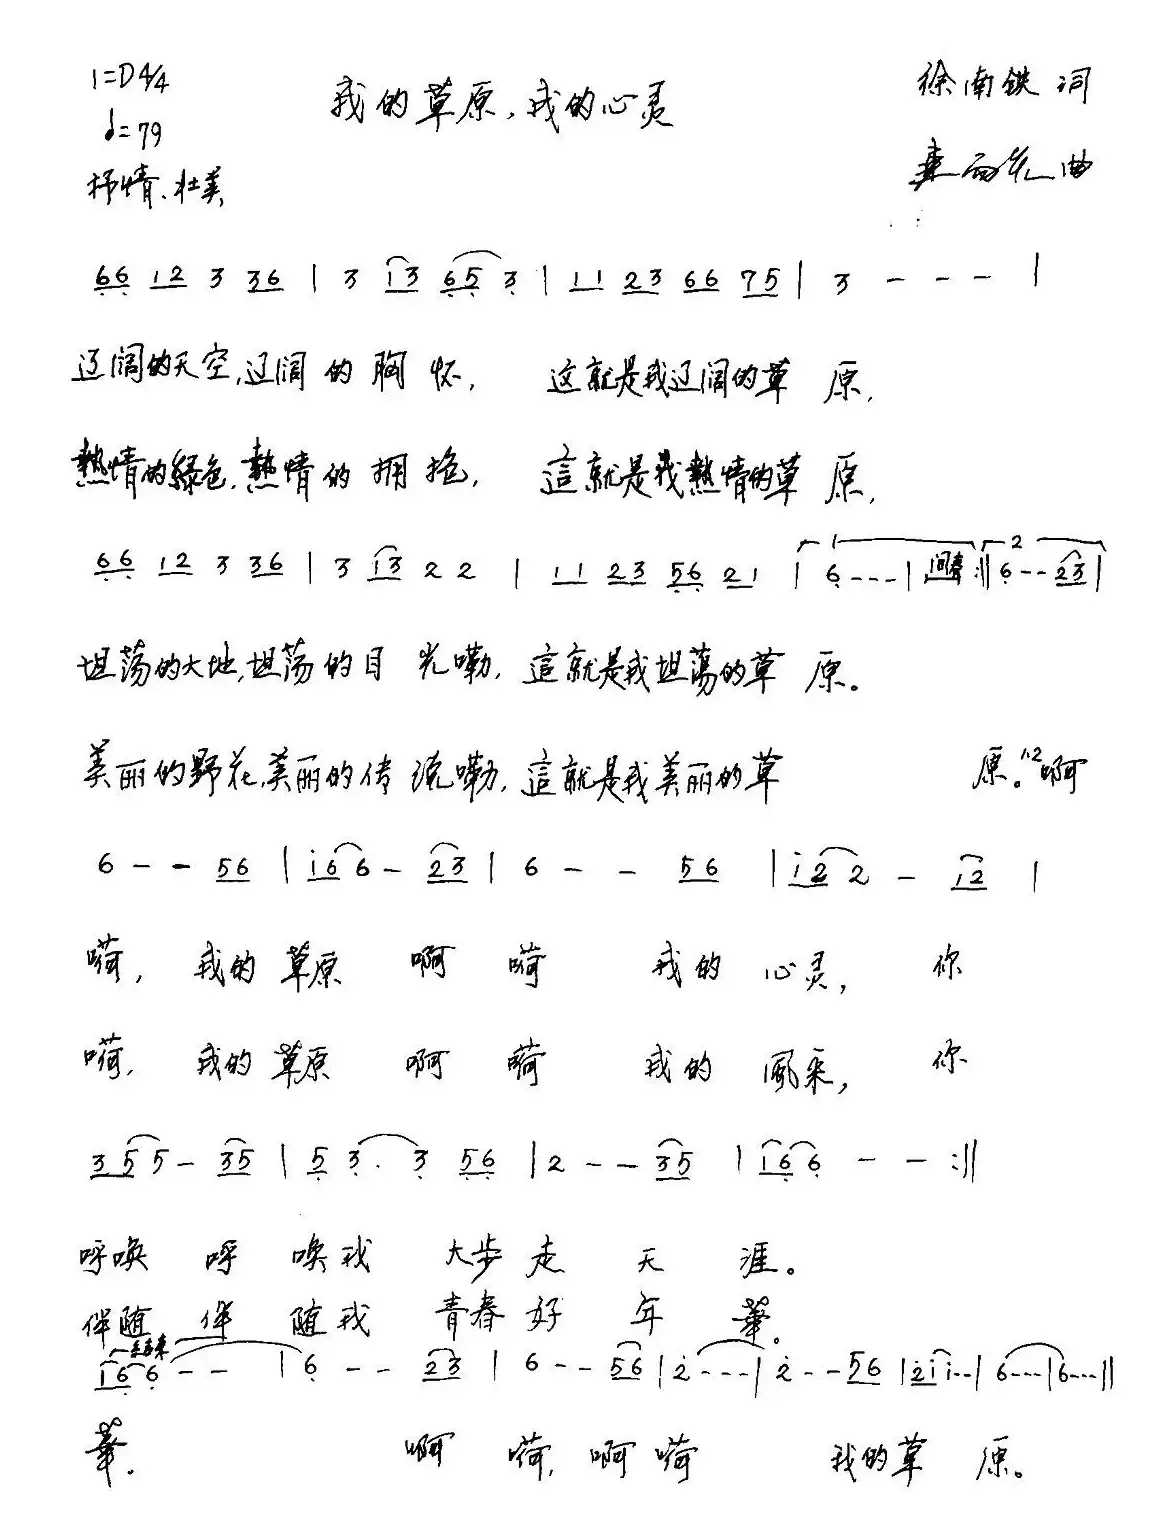 1=D 4/4
我的草原，我的心灵
徐南铁 词
♩=79
曲
抒情、壮美
66 12 3 36 | 3 13 65 3 | 11 23 66 75 | 3 - - - |
辽阔的天空，辽阔的胸怀，这就是我辽阔的草原，
熱情的綠色，熱情的拥抱，這就是我熱情的草原，
66 12 3 36 | 3 13 2 2 | 11 23 56 21 | 1 6 - - - | 间奏 :|| 2 6 - - 23 |
坦荡的大地，坦荡的目光嘞，這就是我坦蕩的草原。
美丽的野花，美丽的传说嘞，這就是我美丽的草原。1.2啊
6 - - 56 | i6 6 - 23 | 6 - - 56 | i2 2 - i2 |
嗬，我的草原啊嗬我的心灵，你
嗬，我的草原啊嗬我的風采，你
35 5 - 35 | 5 3 · 3 56 | 2 - - 35 | 16 6 - - :||
呼唤呼唤我大步走天涯。
伴随伴随我青春好年華。
结束
16 6 - - | 6 - - 23 | 6 - - 56 | 2 - - - | 2 - - 56 | 2i i - - | 6 - - - | 6 - - - ||
華。啊嗬，啊嗬我的草原。